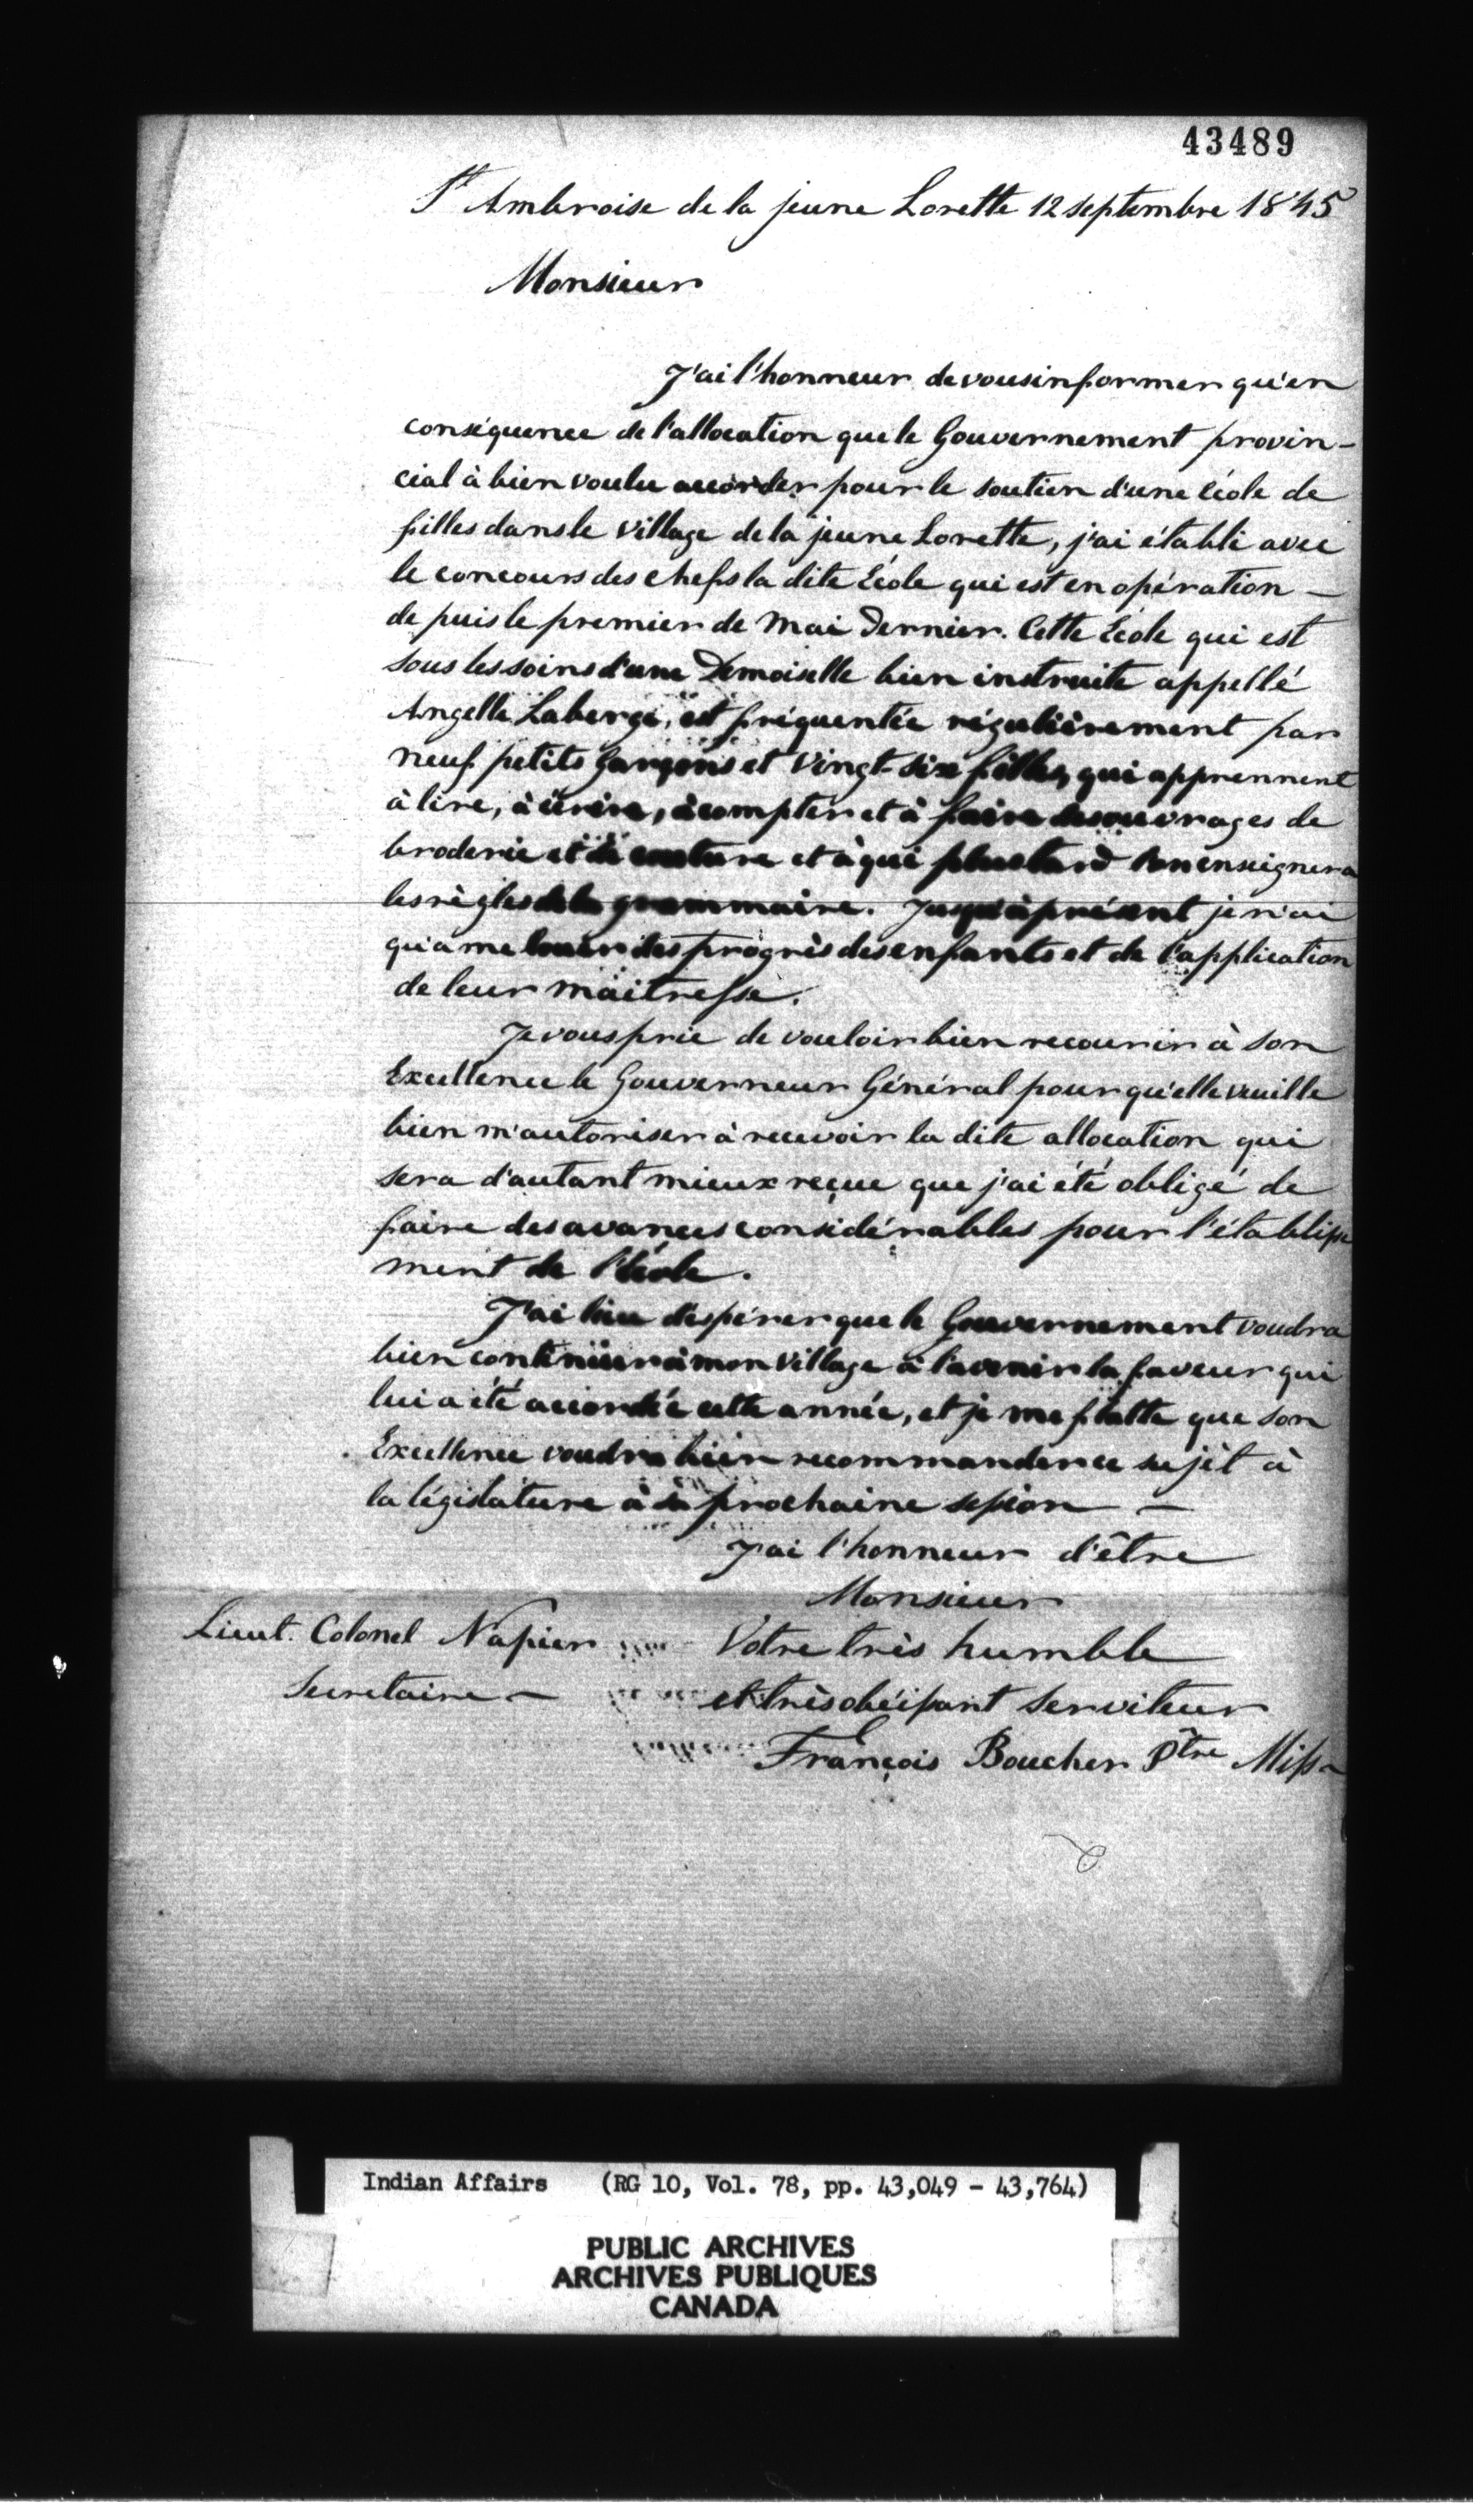 43489
St Ambroise de la jeune Lorette 12 septembre 1845
Monsieur
J'ai l'honneur de vous informer qu'en
conséquence de l'allocation que le Gouvernement provin-
cial à bien voulu accorder pour le soutien d'une école de
filles dans le village de la jeune Lorette, j'ai établi avec
le concours des chefs la dite École qui est en opération —
depuis le premier de Mai Dernier. Cette École qui est
sous les soins d'une Demoiselle bien instruite appellé
Angelle Laberge, est fréquentée régulièrement par
neuf petits garçons et vingt-six filles, qui apprennent
à lire, à écrire, à compter et à faire des ouvrages de
broderie et de couture et à qui plus tard l'on enseignera
les règles de la grammaire. Jusqu'à présent je n'ai
qu'a me louer des progrès des enfants et de l'application
de leur maitresse.
Je vous prie de vouloir bien recourir à son
Excellence le Gouverneur Général pour qu'elle veuille
bien m'autoriser à recevoir la dite allocation qui
sera d'autant mieux reçue que j'ai été obligé de
faire des avances considérables pour l'établisse
ment de l'école.
J'ai lieu d'espérer que le Gouvernement voudra
bien continüer à mon village à l'avenir la faveur qui
lui a été accordée cette année, et je me flatte que son
Excellence voudra bien recommander ce sujèt à
la législature à sa prochaine session —
J'ai l'honneur d'être
Monsieur
Votre très humble
et très obéissant serviteur
François Boucher Ptre Miss
Lieut. Colonel Napier
Secretaire —
Indian Affairs (RG 10, Vol. 78, pp. 43,049 - 43,764)
PUBLIC ARCHIVES
ARCHIVES PUBLIQUES
CANADA